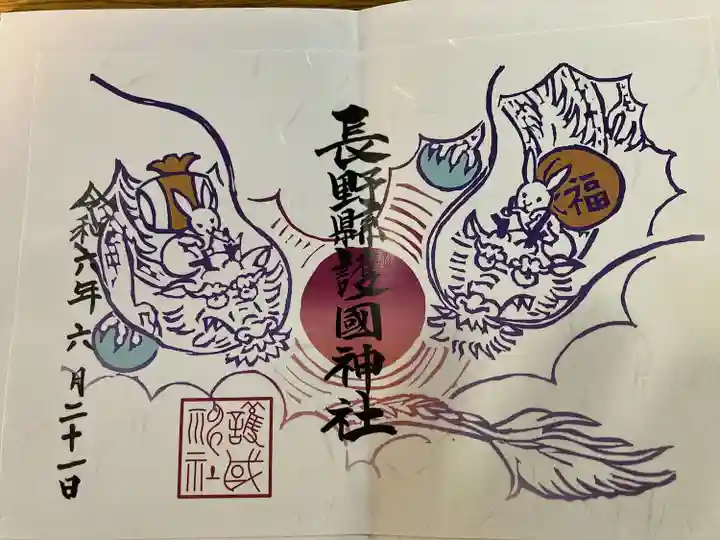 福
長野縣護國神社
護国
神社
令和六年六月二十一日